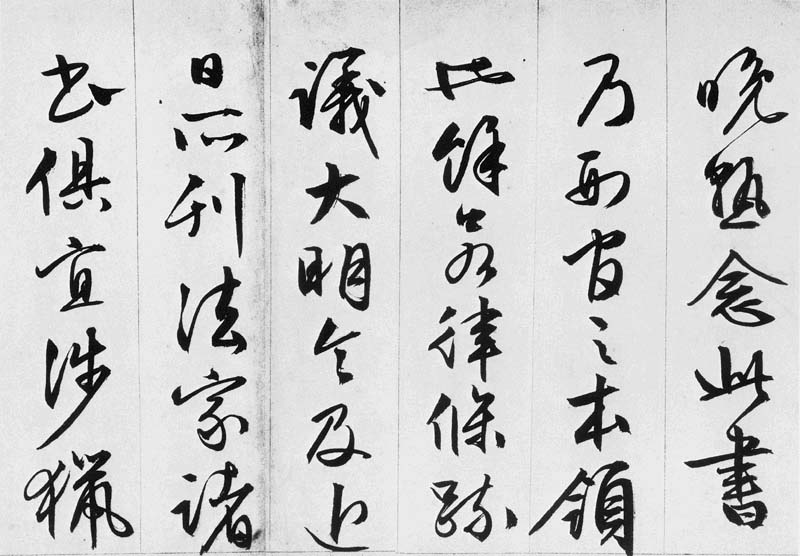 晚熟念此書
乃刑官之本領
此餘律條疏
議大明令及近
日所刊法家諸
書俱宜涉獵